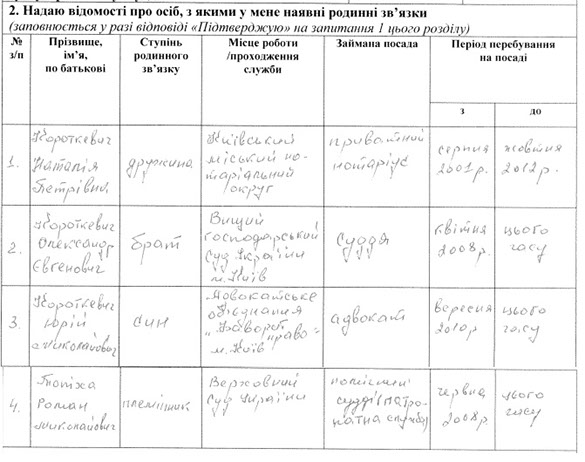 2. Надаю відомості про осіб, з якими у мене наявні родинні зв’язки
(заповнюється у разі відповіді «Підтверджую» на запитання 1 цього розділу)
№ з/п
Прізвище, ім’я, по батькові
Ступінь родинного зв’язку
Місце роботи /проходження служби
Займана посада
Період перебування на посаді
з
до
1.
Короткевич
Наталія
Петрівна
дружина
Київський
міський но-
таріальний
округ
приватний
нотаріус
серпня
2001 р.
жовтня
2012 р.
2.
Короткевич
Олександр
Євгенович
брат
Вищий
господарський
суд України
м. Київ
суддя
квітня
2008 р.
цього
часу
3.
Короткевич
Юрій
Миколайович
син
Адвокатське
об'єднання
право"
м. Київ
адвокат
вересня
2010 р
цього
часу
4.
Роман
Миколайович
племінник
Верховний
Суд України
помічник
судді (патро-
натна служба)
червня
2008 р.
цього
часу